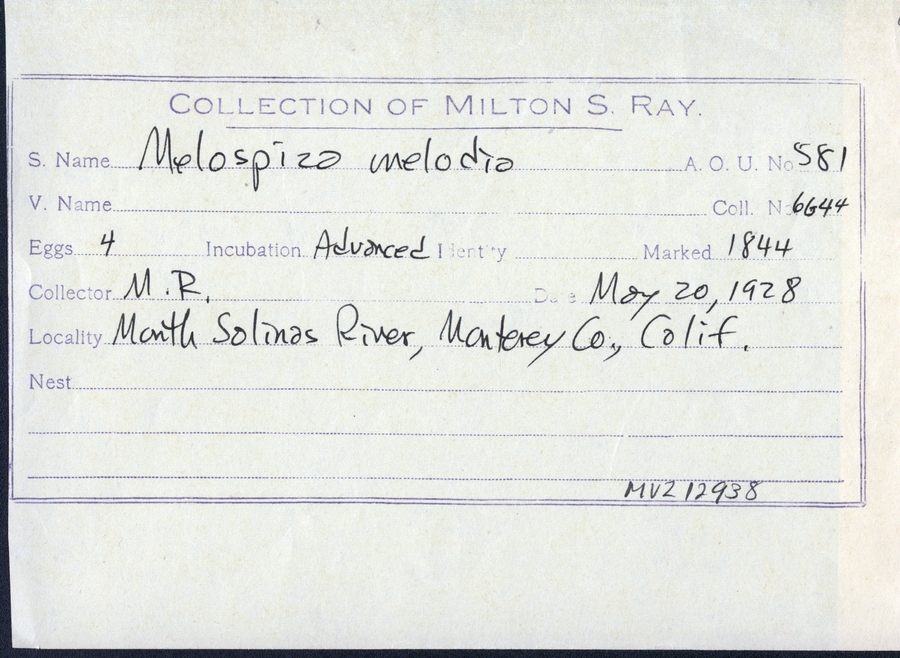 COLLECTION OF MILTON S. RAY.
S. Name Melospiza melodia A. O. U. No 581
V. Name Coll. N 6644
Eggs 4 Incubation Advanced Identity Marked 1844
Collector M.R. Date May 20, 1928
Locality Mouth Salinas River, Monterey Co., Calif.
Nest
MVZ 12938